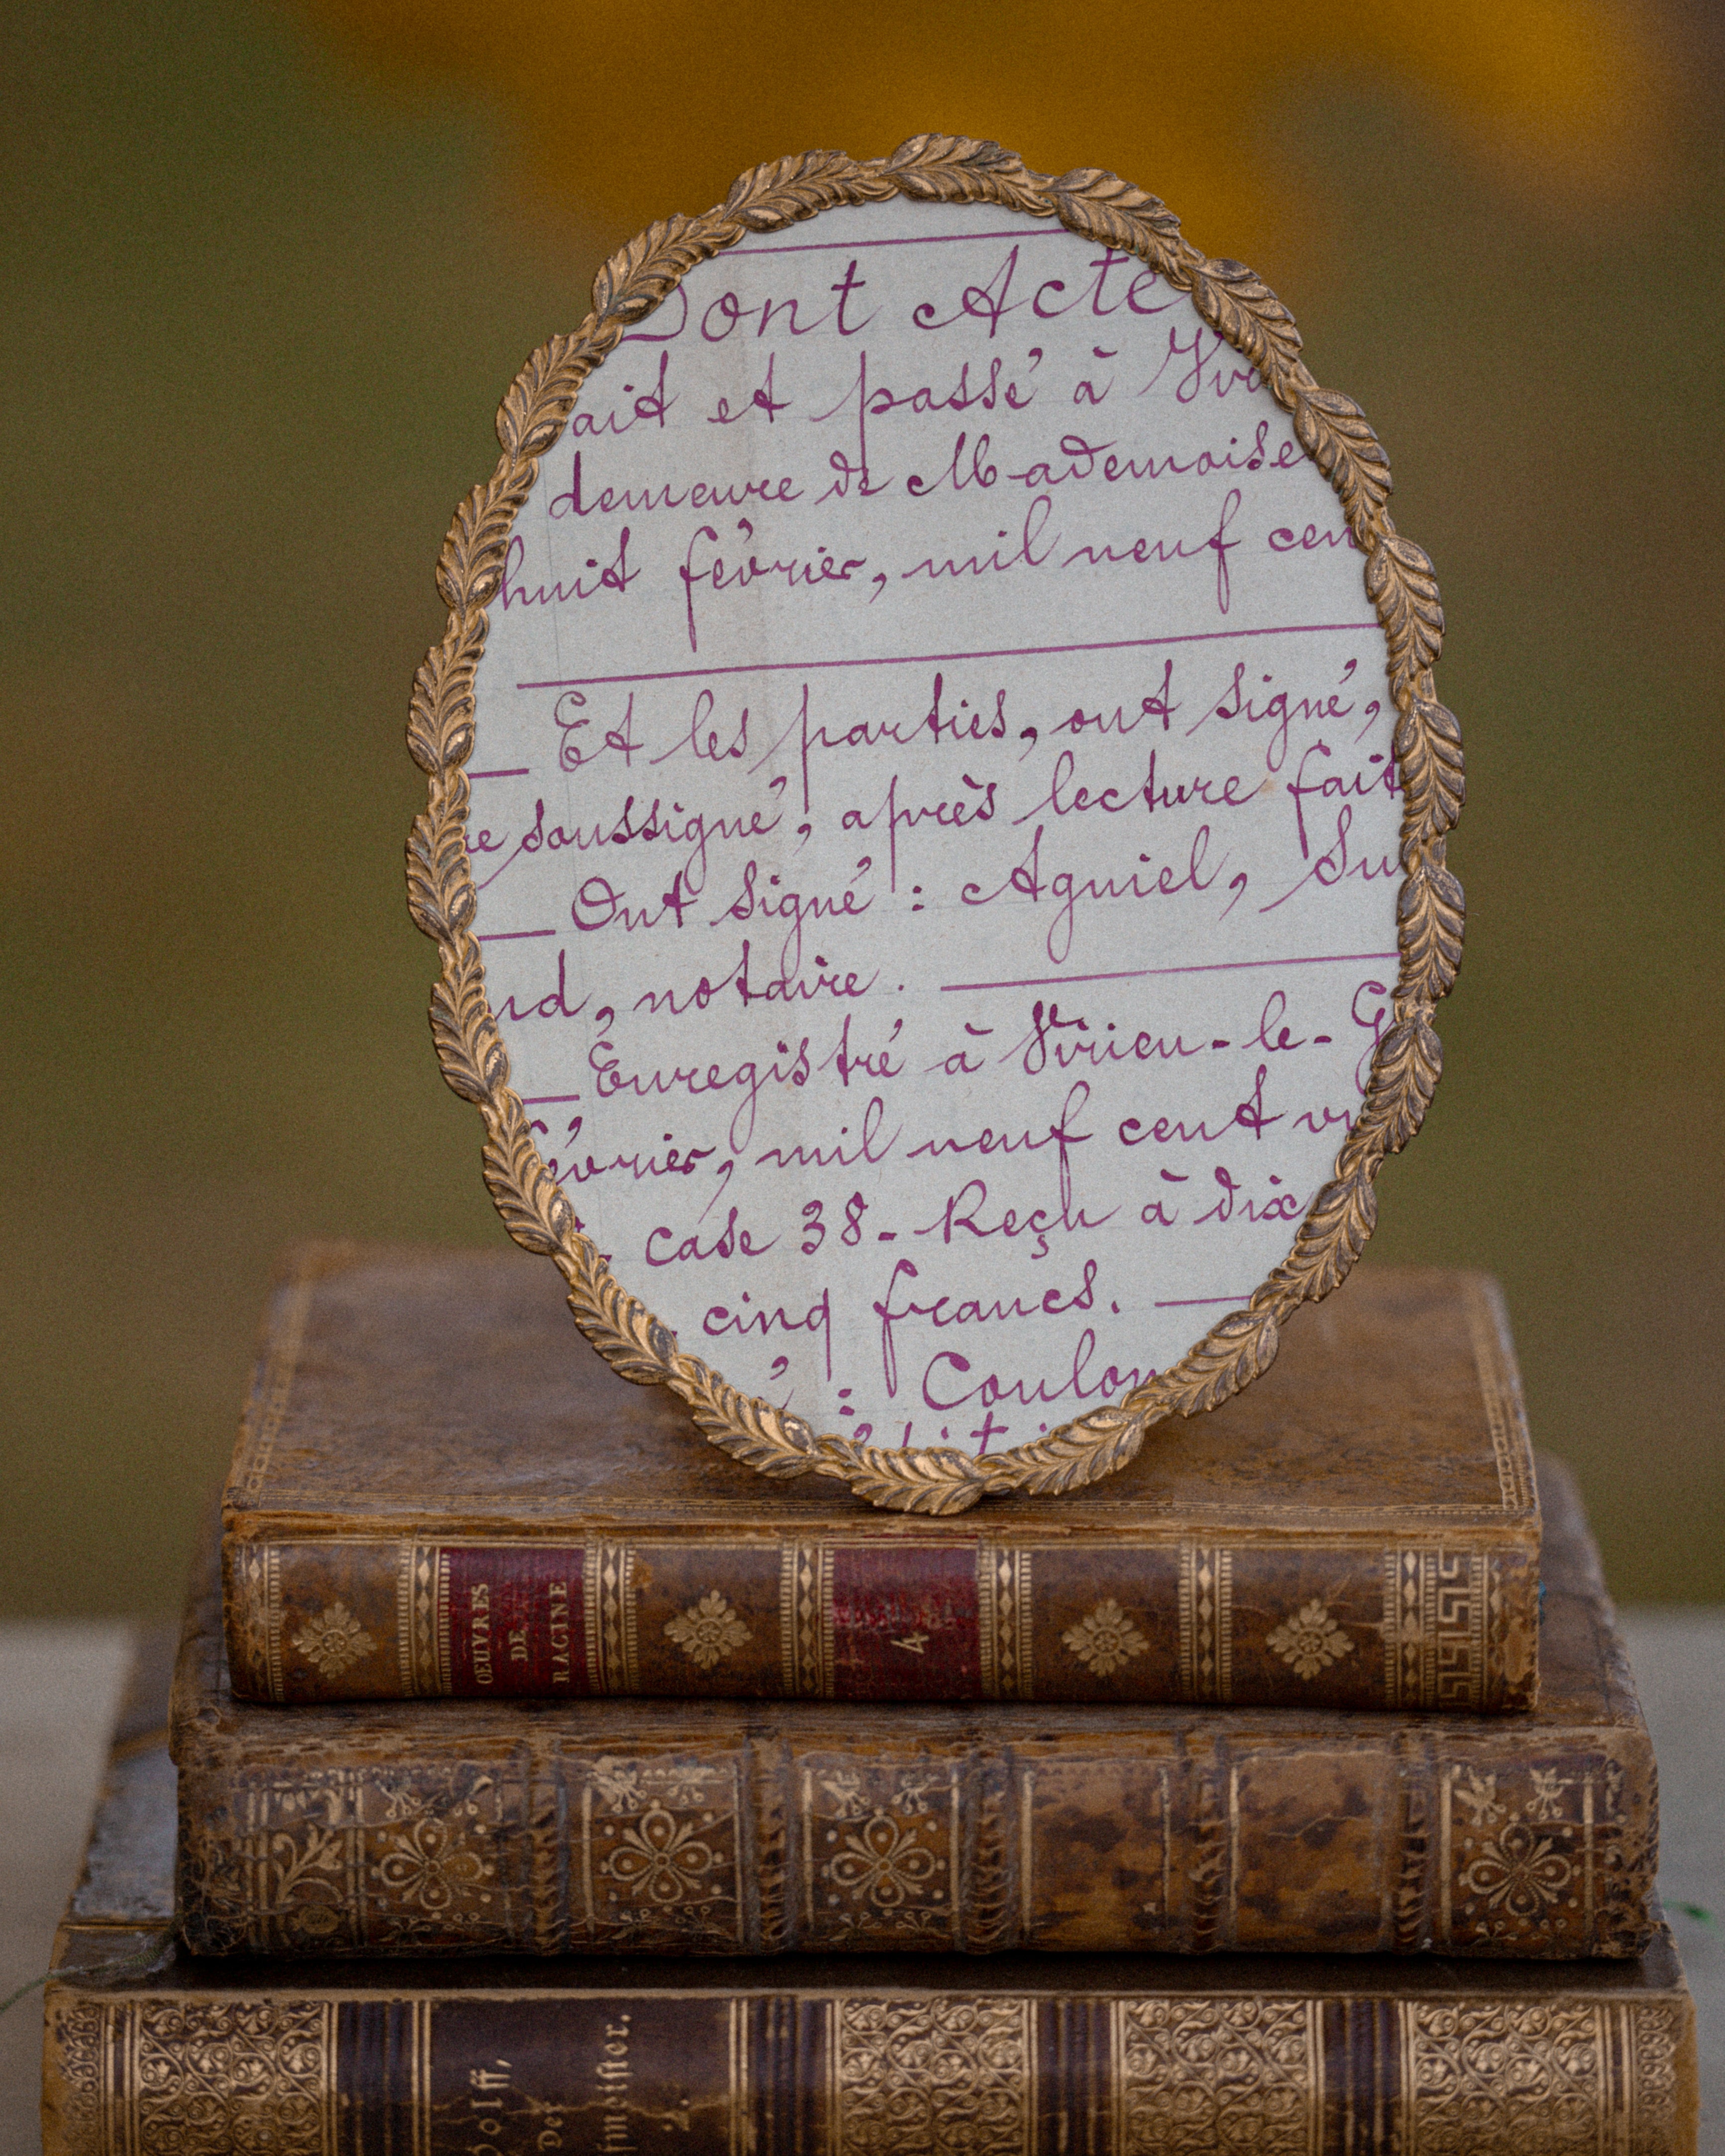 Dont Acte
ait et passé à
demeure de Mademoise
huit février, mil neuf cen
Et les parties, ont signé,
re soussigné, après lecture fait
Ont signé : Aguiel, Su
nd, notaire.
Enregistré à Virieu-le-G
évrier, mil neuf cent vi
case 38- Reçu à dix
cinq francs.
é : Coulon
OEUVRES
DE
RACINE
4
olff,
Der